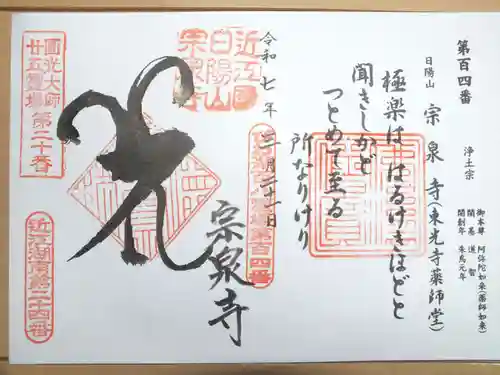 第百四番
浄土宗
日陽山 宗泉寺(東光寺薬師堂)
御本尊 阿弥陀如来(薬師如来)
開基 道智
開創年 朱鳥元年
極楽は はるけきほどと
聞きしかど
つとめて至る
所なりけり
令和七年三月二十一日
近江国
日陽山
宗泉寺
宗泉寺
圓光大師
廿五霊場
第二十番
近江湖南第二十四番
第百四番